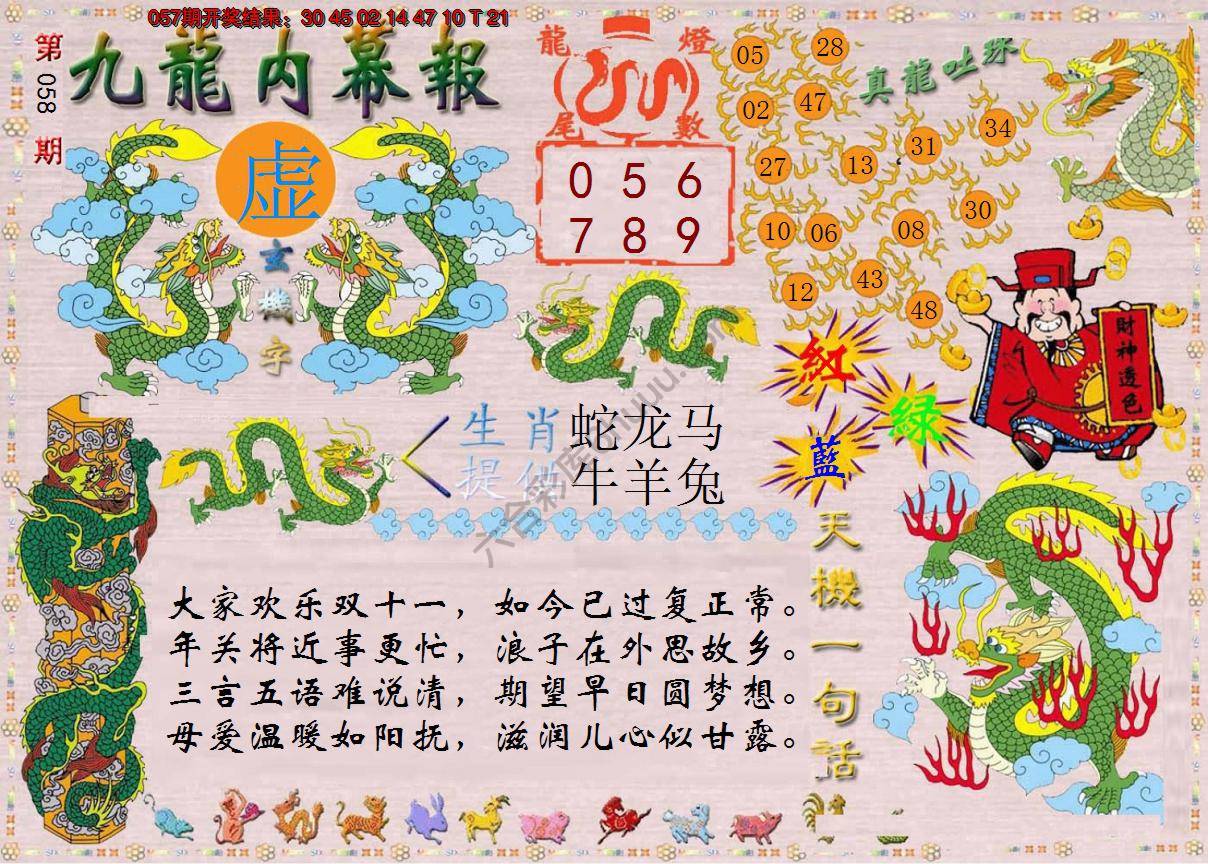 057期开奖结果：30 45 02 14 47 10 T 21
第058期
九龍内幕報
虚
玄機字
龍燈
尾數
0 5 6
7 8 9
真龍吐珠
05 28
02 47
27 13 31 34
10 06 08 30
12 43 48
財神透色
紅
綠
藍
生肖
提供
蛇龙马
牛羊兔
大家欢乐双十一，如今已过复正常。
年关将近事更忙，浪子在外思故乡。
三言五语难说清，期望早日圆梦想。
母爱温暖如阳抚，滋润儿心似甘露。
天機一句話